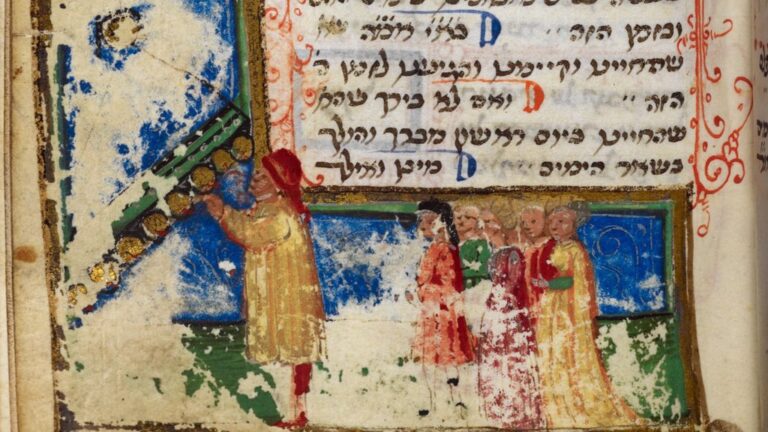 ובזמן הזה בא״י אמ״ה
שהחיינו וקיימנו והגיענו לזמן ה
הזה ואם לא בירך
שהחיינו ביום ראשון מברך והולך
בשאר הימים מיכן ואילך